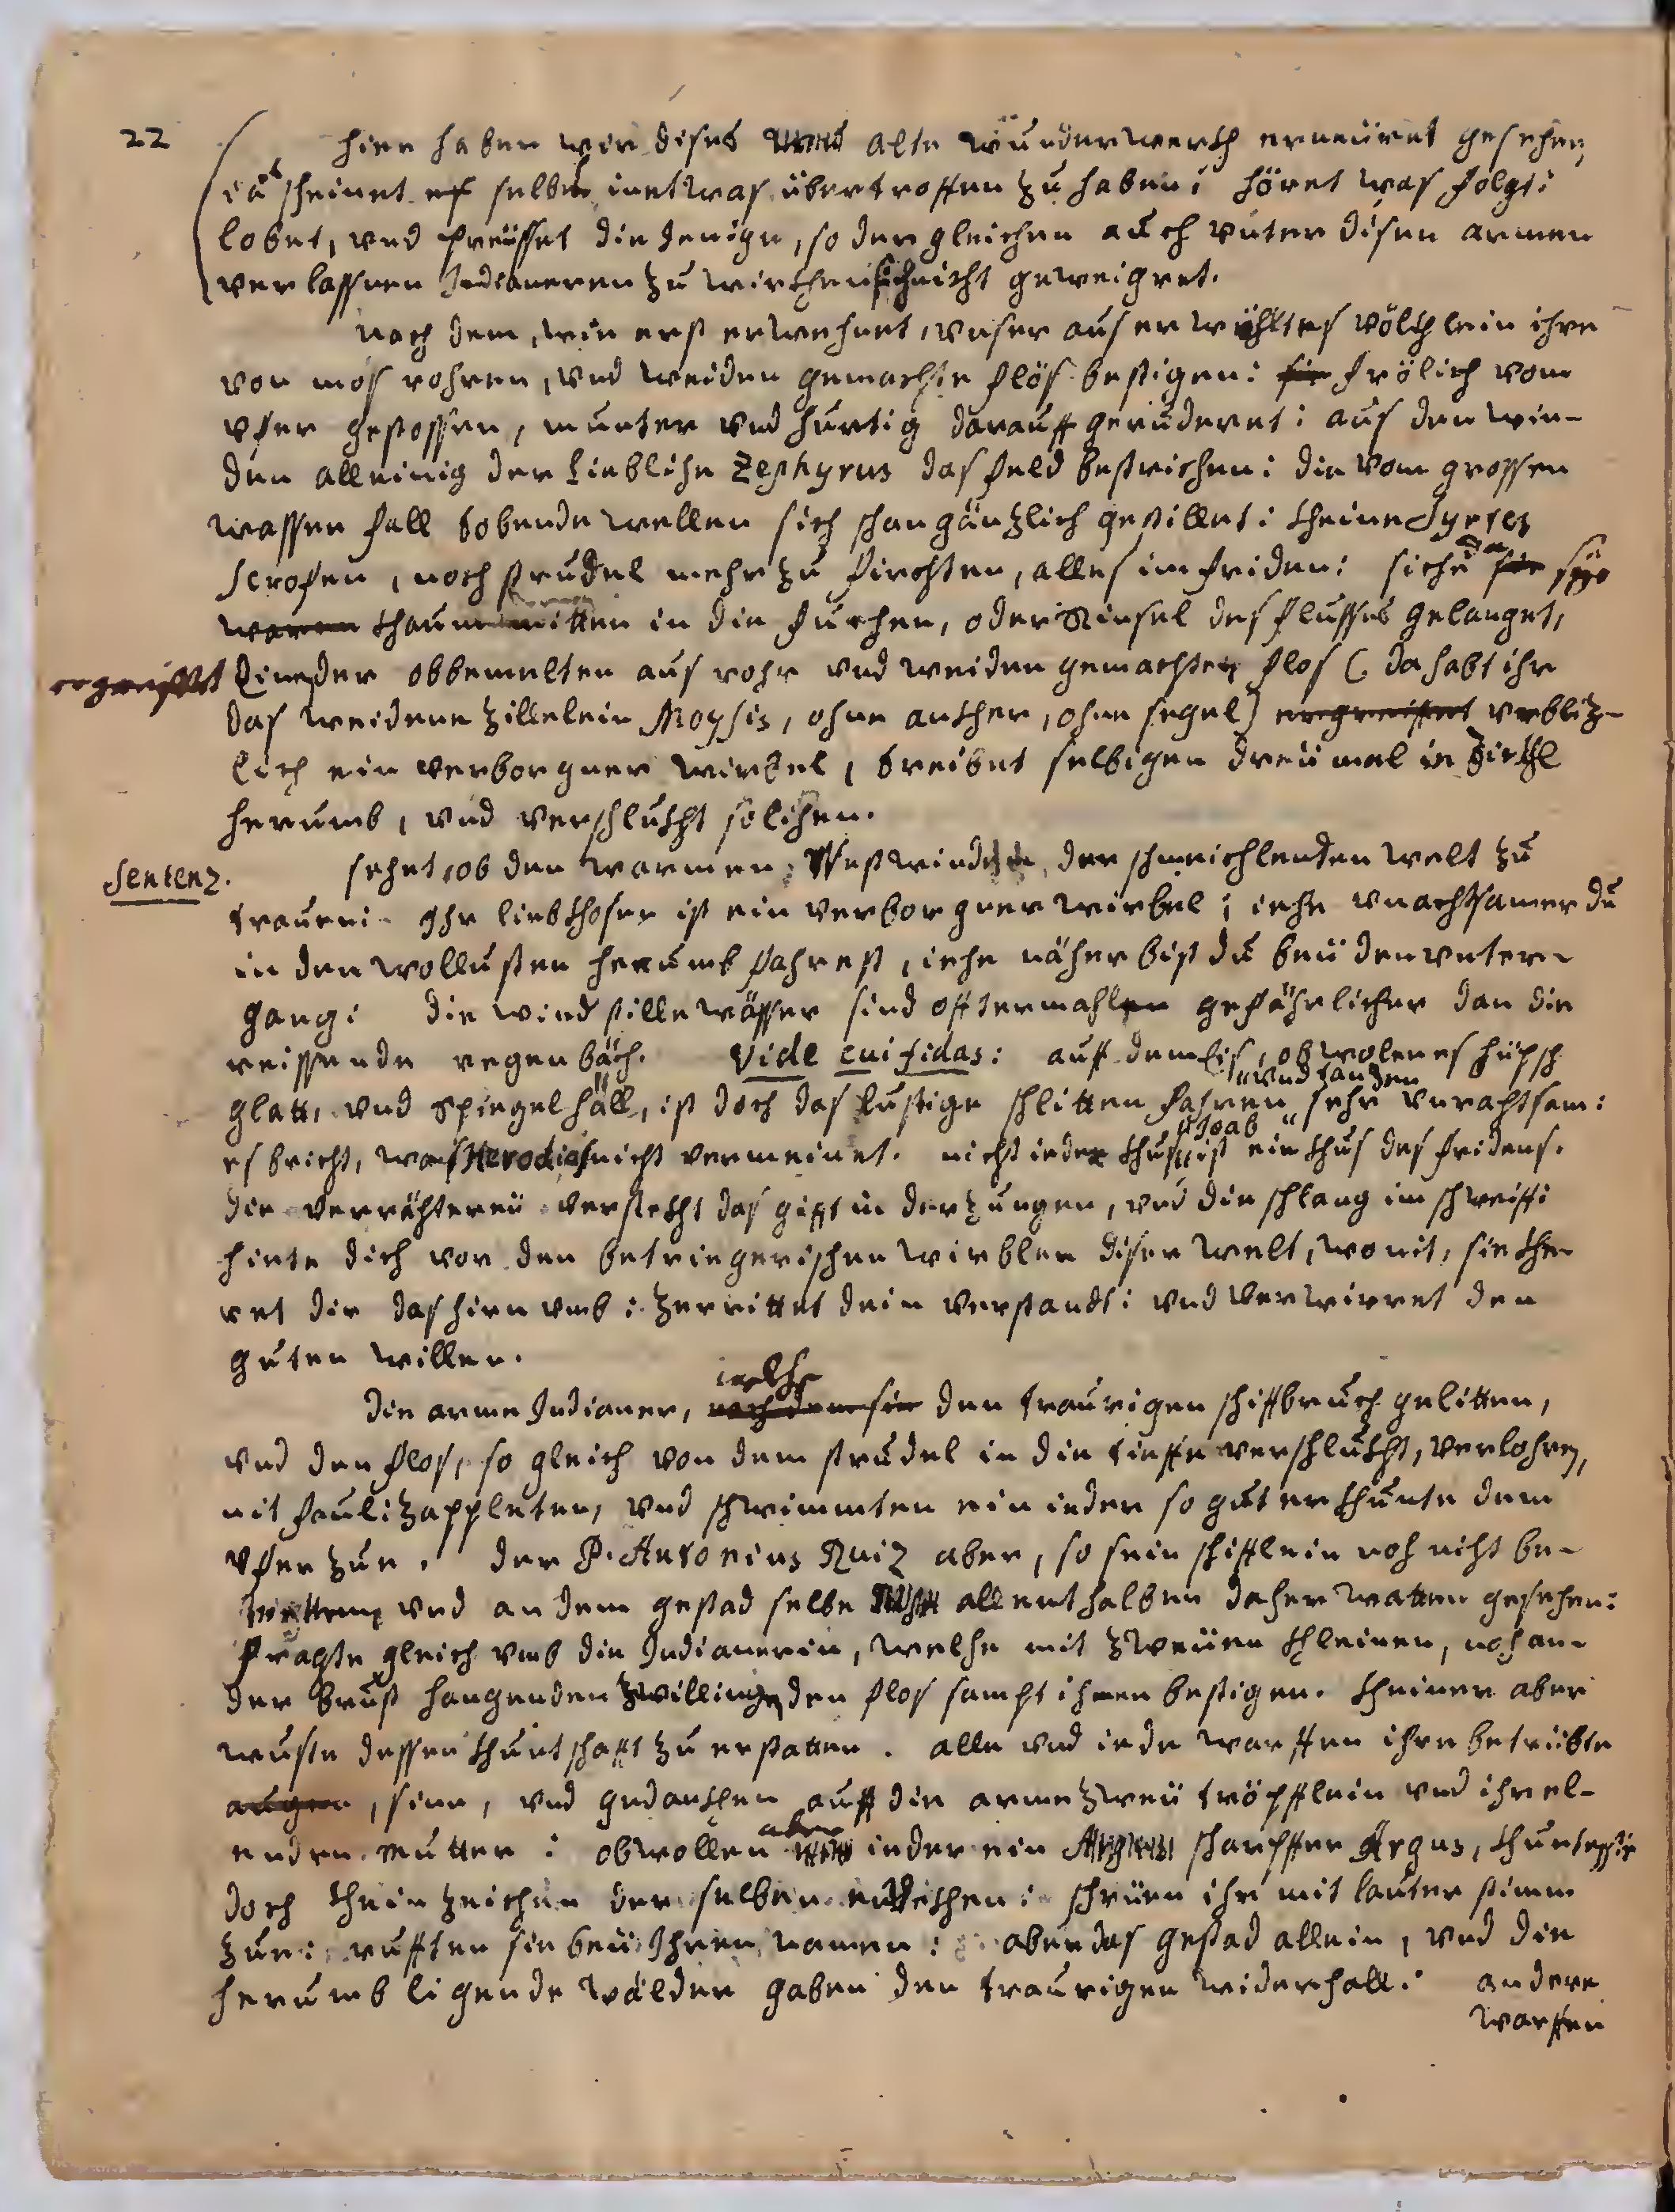 22
hier haben wir dises alte wunderwerch erneüret gesehen,
ja scheinet es selbes inetwas übertroffen zu haben: höret was folgt:
lobet, vnd preüsset die jenige, so dergleichen auch vnter disen armen
verlassnen Indianeren zu wirchen sich nicht geweigret.
nach dem, wie erst erwehnet, vnser auserwöhltes völchlein ihre
von mos rohren, vnd weiden gemachte flös bestigen: sie frölich vom
vfer gestossen, munter vnd hurtig darauff geruderet: aus den win-
den alleinig der liebliche Zephyrus das feld bestrichen: die vom grossen
wasser fall tobende wellen sich schon gäntzlich gestillet: cheine Syrtes
Scrofen, noch strudel mehr zu firchten, alles im friden: sihe da sie
waren chaum mitten in die furchen, oder Rinsel des flusses gelanget,
ergreiffet Eine der obbemelten aus rohr vnd weiden gemachten flos (da habt ihr
das weidene zillelein Moysis, ohne ancher, ohne segel) ergreiffet vrbliz-
lich ein verborgner wirbel, treibet selbigen dreümal in Zirchl
herumb, vnd verschlucht solchen.
Sentenz. sehet, ob den warmen Westwinden der schmeichlenden welt zu
trauen: Ihr liebchosen ist ein verborgner wirbel; iehe vnachtsamer du
in den wollusten herumb fahrest, iehe näher bist du beü den vnter-
gang: die windstille wässer sind offtermahlen gefährlicher dan die
reissende regenbäch. Vide cui fidas: auff dem Eis, obwolen es hüpsch
" vnd tanzen
glatt, vnd spiegel häll, ist doch das lustige schlitten fahren " sehr verachtsam:
" Joab "
es bricht, was Herodias nicht vermeinet. nicht ieder chus " ist ein chus des fridens.
die verrähtereü verstecht das gifft in der zungen, vnd die schlang im schweiff:
hiete dich vor den betriegerischen wirblen diser welt, womit, sie che-
ret dir das hirn vmb: zerrittet dein verstandt: vnd verwirret den
guten willen.
welche
die arme Indianer, nach dem sie den traurigen schiffbruch gelitten,
vnd den flos, so gleich von dem strudel in die tieffe verschlucht, verlohren,
mit Pauli zappleten, vnd schwimmten ein ieder so gut er chunte dem
vfer zue. der P. Antonius Ruiz aber, so sein schifflein noch nicht be-
tretten, vnd an dem gestad selbe allenthalben daher watten gesehen:
fragte gleich vmb die Indianerin, welche mit zweüen chleinen, noch an
der brust hangenden zwillingen den flos sampt ihnen bestigen. cheiner aber
wuste dessen chuntschafft zu erstatten. alle vnd iede warffen ihre betrübte
augen, sinn, vnd gedanchen auff die arme zweü tröpfflein vnd ihre el-
aber
enden mutter: obwollen ieder ein scharpffer Argus, chuntes sie
doch chein zeichen derselben entdechen: schrüen ihr mit lauter stimm
zue: rufften sie beü Ihren namen: aber das gestad allein, vnd die
herumb ligende wälder gaben den traurigen widerhall: andere
warffen